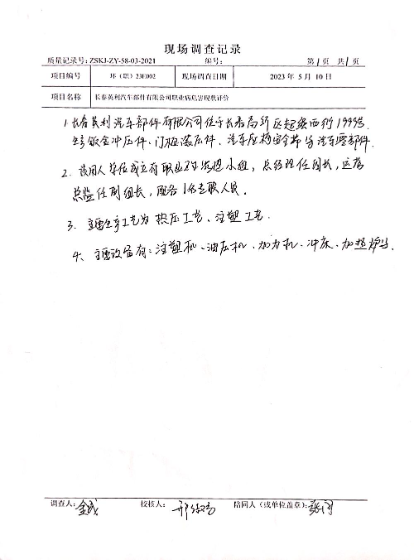 现场调查记录
质量记录号：ZSKJ-ZY-58-03-2021 编号： 第1页 共1页
项目编号 环（职）23E002 现场调查日期 2023 年 5 月 10 日
项目名称 长春英利汽车部件有限公司职业病危害现状评价
1、长春英利汽车部件有限公司位于长春高新区超越西街1999号
生产钣金冲压件、门框滚压件、汽车座椅 等汽车零部件。
2、该用人单位成立有职业卫生管理小组，总经理任组长，运营
总监任副组长，配备1名专职人员。
3、主要生产工艺为热压工艺、注塑工艺。
4、主要设备有：注塑机、油压机、加力机、冲床、加热炉等
调查人： 校核人： 陪同人（或单位盖章）：